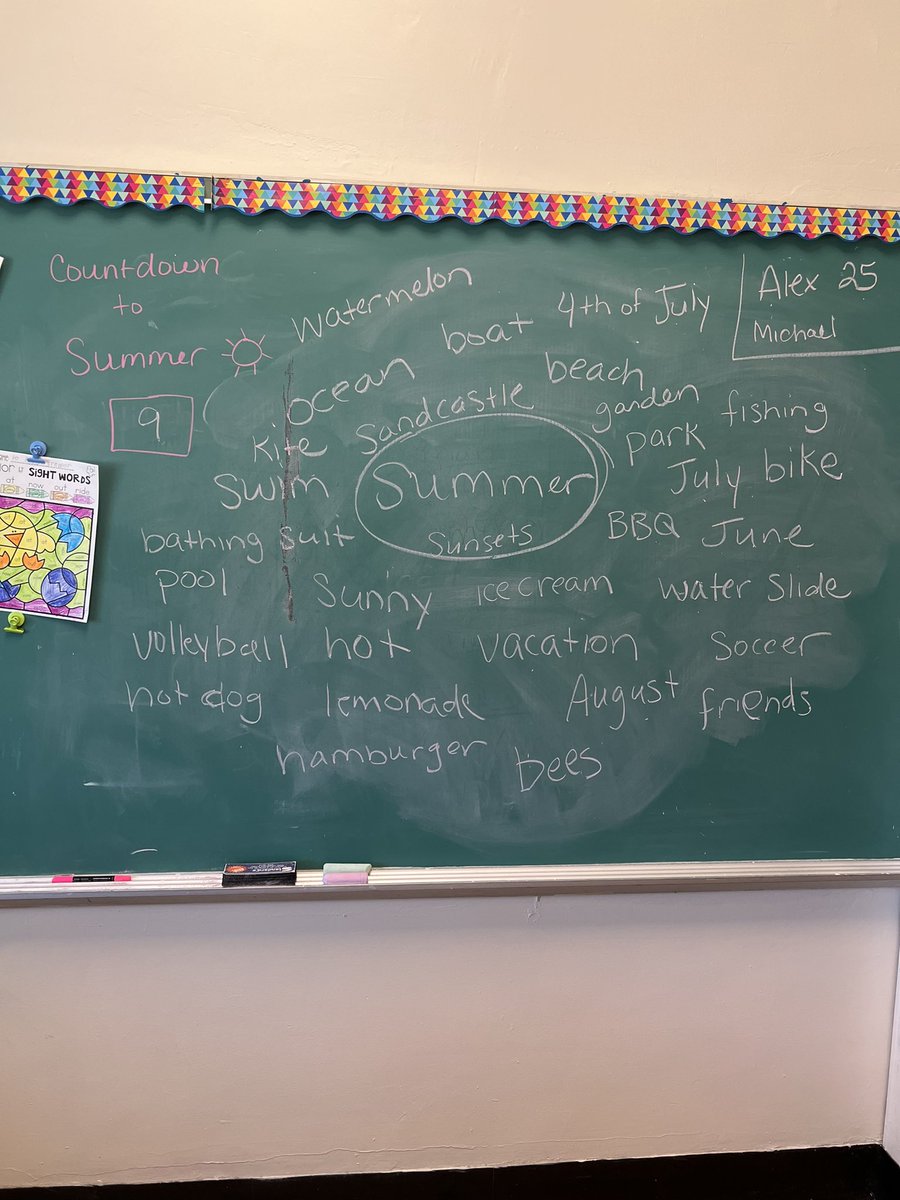 Countdown
to
Summer
9
Watermelon
boat
4th of July
Alex 25
Michael
ocean
Sandcastle
beach
garden
fishing
kite
Summer
park
July
bike
Swim
Sunsets
BBQ
June
bathing suit
pool
Sunny
ice cream
water Slide
volleyball
hot
vacation
Soccer
hot dog
lemonade
August
friends
hamburger
bees
SIGHT WORDS
at
now
out
ride